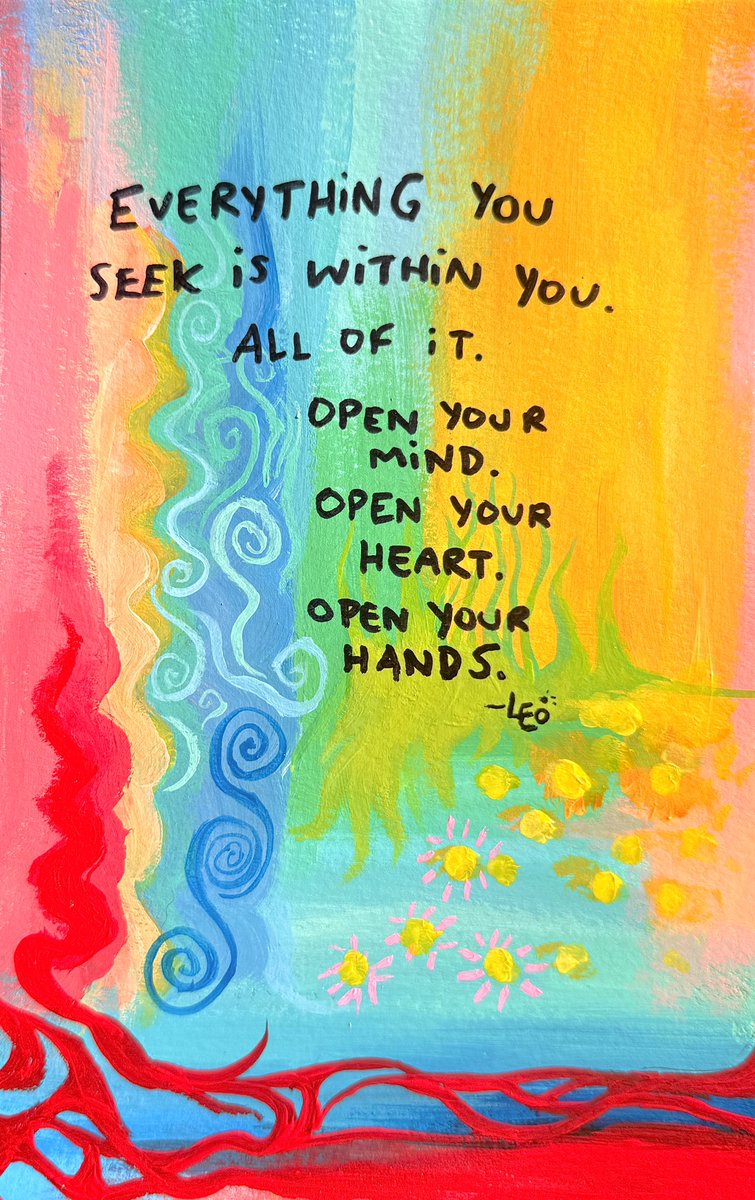 EVERYTHiNG YOU
SEEK iS WiTHiN YOU.
ALL OF iT.
OPEN YOUR
MiND.
OPEN YOUR
HEART.
OPEN YOUR
HANDS.
-LEO